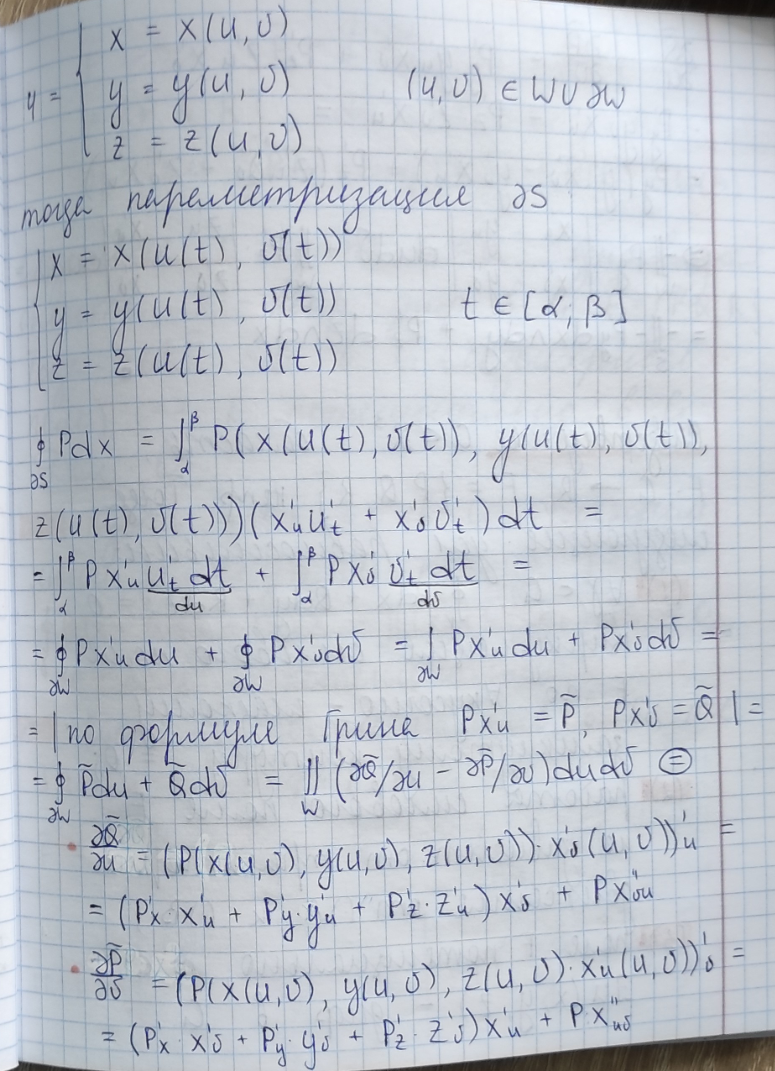 φ = { x = x(u, v)
y = y(u, v) (u, v) ∈ W ∪ ∂W
z = z(u, v)
тогда параметризация ∂S
{ x = x(u(t), v(t))
y = y(u(t), v(t)) t ∈ [α, β]
z = z(u(t), v(t))
∮_{∂S} Pdx = ∫_α^β P(x(u(t), v(t)), y(u(t), v(t)),
z(u(t), v(t)))(x'_u u'_t + x'_v v'_t) dt =
= ∫_α^β P x'_u u'_t dt + ∫_α^β P x'_v v'_t dt =
du dv
= ∮_{∂W} P x'_u du + ∮_{∂W} P x'_v dv = ∫_{∂W} P x'_u du + P x'_v dv =
= | по формуле Грина P x'_u = P̃, P x'_v = Q̃ | =
= ∮_{∂W} P̃ du + Q̃ dv = ∬_W (∂Q̃/∂u − ∂P̃/∂v) du dv ⊜
• ∂Q̃/∂u = (P(x(u, v), y(u, v), z(u, v)) · x'_v (u, v))'_u =
= (P'_x · x'_u + P'_y · y'_u + P'_z · z'_u) x'_v + P x''_{vu}
• ∂P̃/∂v = (P(x(u, v), y(u, v), z(u, v) · x'_u (u, v))'_v =
= (P'_x · x'_v + P'_y · y'_v + P'_z · z'_v) x'_u + P x''_{uv}